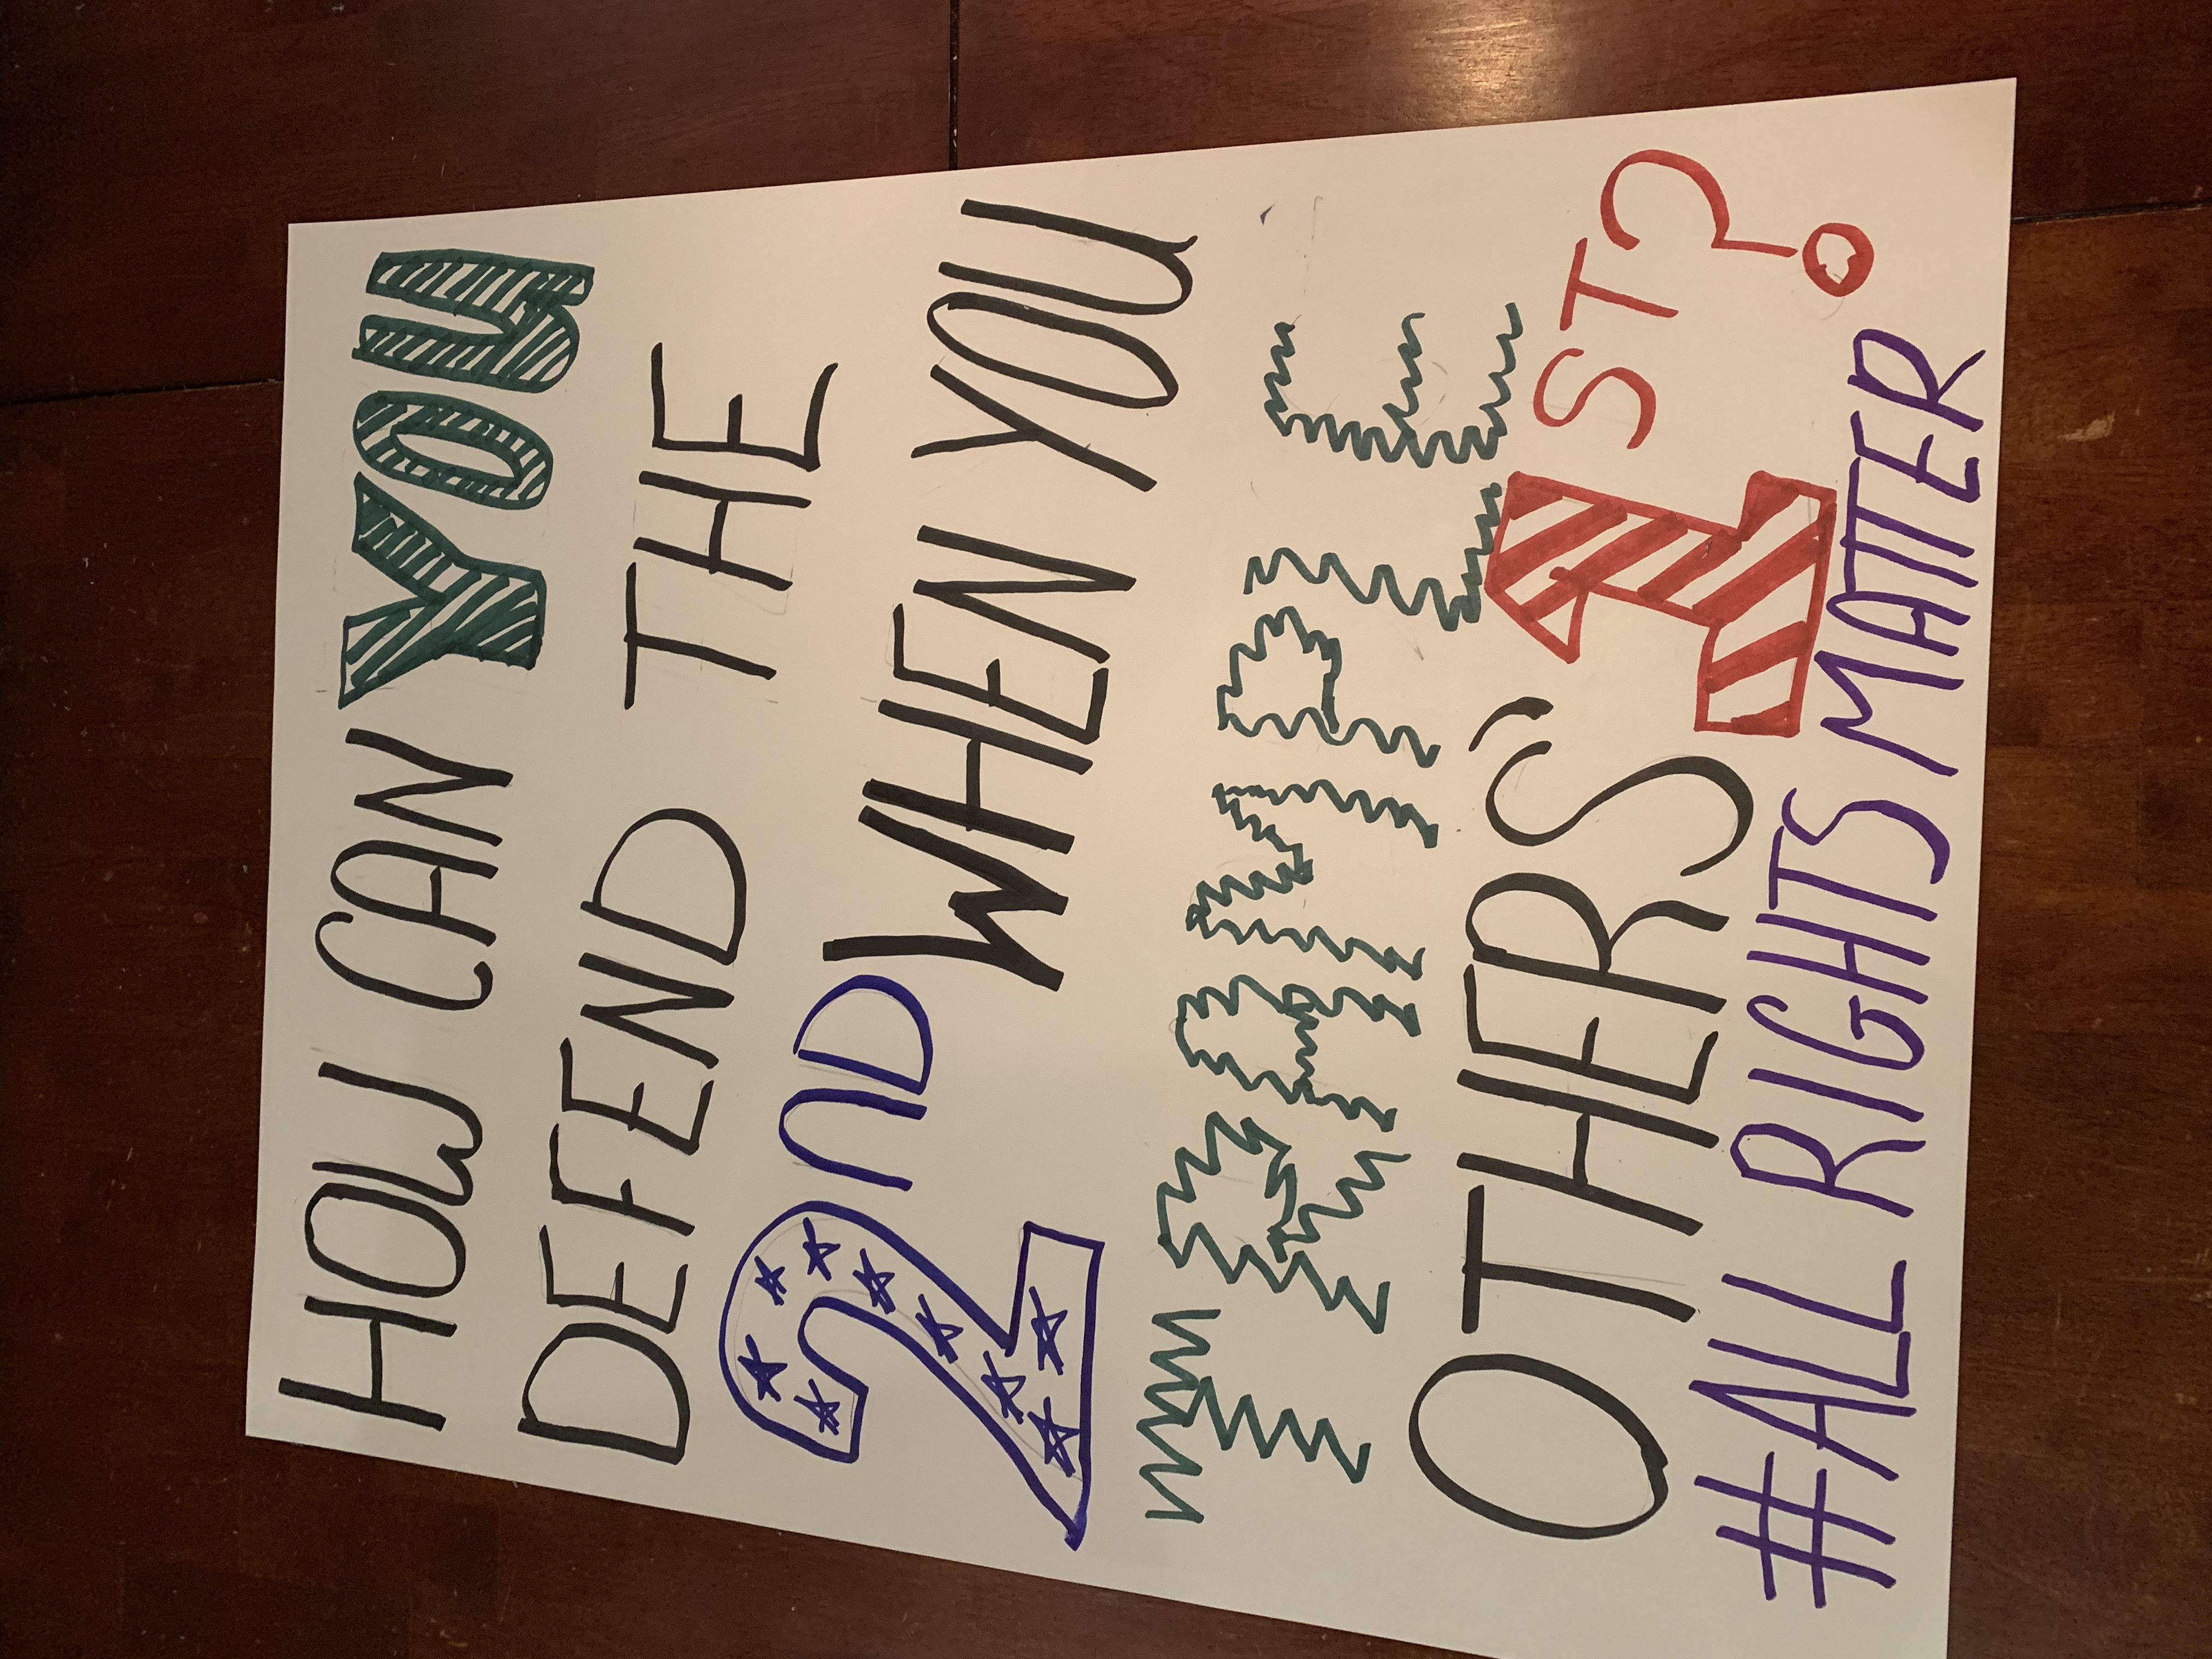 HOW CAN YOU
DEFEND THE
2ND WHEN YOU
TRAMPLE
OTHERS' 1ST?
#ALL RIGHTS MATTER